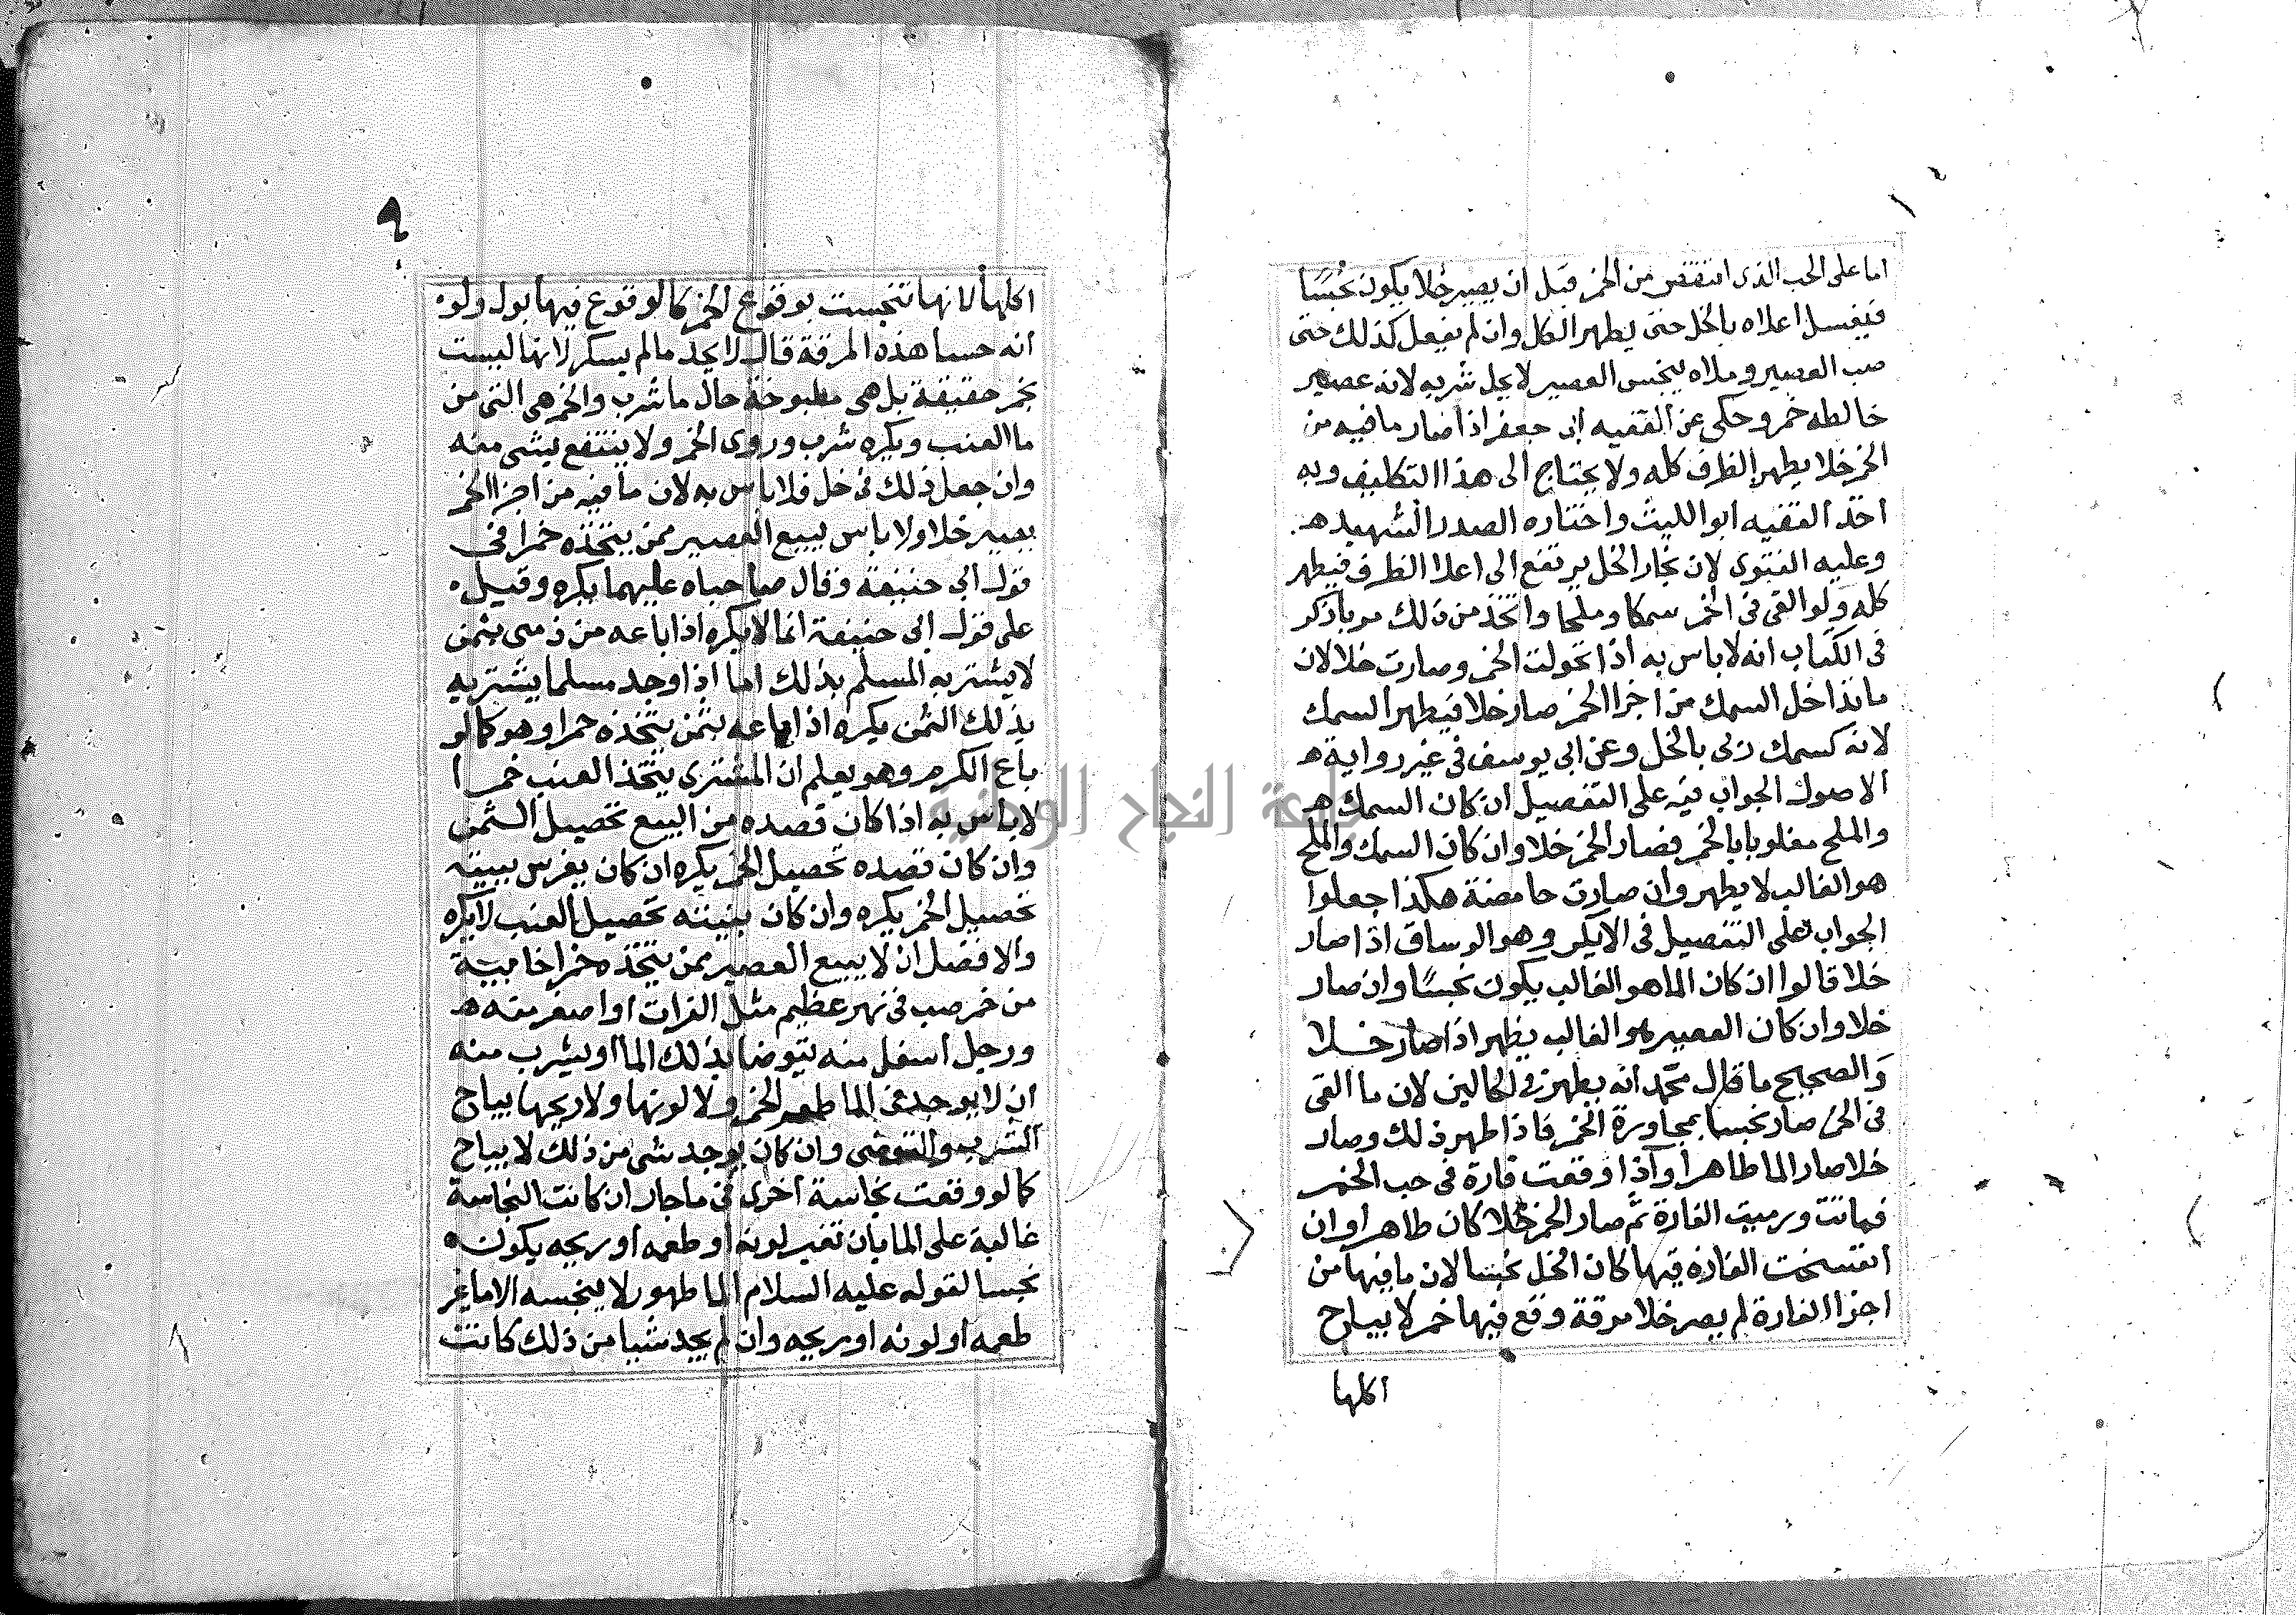 اما على الحب الذى انتقص من الخمر قبل ان يصير خلا يكون نجسًا
فيغسل اعلاه بالخل حتى يطهر الكل وان لم يفعل كذلك حتى
صب العصير وملاه يتجس العصير لا يحل شربه لانه عصير
خالطه خمر وحكى عن الفقيه ابى جعفر اذا صار ما فيه من
الخمر خلا يطهر الظرف كله ولا يحتاج الى هذا التكليف وبه
اخذ الفقيه ابو الليث واختاره الصدر الشهيد هـ
وعليه الفتوى لان بخار الخل يرتفع الى اعلا الظرف فيطهر
كله ولو القى فى الخمر سمكا وملحا واتخذ من ذلك مربا ذكر
فى الكتاب انه لا باس به اذا تحولت الخمر وصارت خلا لان
ما تداخل السمك من اجزا الخمر صار خلا فيطهر السمك
لانه كسمك ربى بالخل وعن ابى يوسف فى غير رواية هـ
الاصول الجواب فيه على التفصيل ان كان السمك هـ
والملح مغلوبا بالخمر فصار الخمر خلا وان كان السمك والملح
هو الغالب لا يطهر وان صارت حامضة هكذا جعلوا
الجواب على التفصيل فى الايكر وهو الوساق اذا صار
خلا قالوا ان كان الما هو الغالب يكون نجسًا وان صار
خلا وان كان العصير هو الغالب يطهر اذا صار خلا
والصحيح ما قال محمد انه يطهر فى الحالين لان ما القى
فى الخمر صار نجسا بمجاورة الخمر فاذا طهر ذلك وصار
خلا صار الما طاهرا واذا وقعت فارة فى حب الخمر
فماتت ورميت الفارة ثم صار الخمر خلا كان طاهرا وان
انفسخت الفارة فيها كان الخل نجسا لان ما فيها من
اجزا الفارة لم يصر خلا مرقة وقع فيها خمر لا يباح
اكلها
٩
اكلها لانها تنجست بوقوع الخمر كالو وقوع فيها بول ولوه
انه حسا هذه المرقة قال لا يحد ما لم يسكر لانها ليست
بخمر حقيقة بل هى مطبوخة حال ما شرب والخمر هى التى من
ما العنب ويكره شرب وروى الخمر ولا ينتفع بشى منه
وان جعل ذلك فى خل فلا باس به لان ما فيه من اجزا الخمر
يصير خلا ولا باس ببيع العصير ممن يتخذه خمرا فى
قول ابى حنيفة وقال صاحباه عليهما يكره وقيل ه
على قول ابى حنيفة انما لا يكره اذا باعه من ذمى بثمن
لا يشتريه المسلم بذلك اما اذا وجد مسلما يشتريه
بذلك الثمن يكره اذا باعه بثمن يتخذه خمرا وهو كالو
باع الكرم وهو يعلم ان المشترى يتخذ العنب خمرا
لا باس به اذا كان قصده من البيع تحصيل الثمن
وان كان قصده تحصيل الخمر يكره ان كان يغرس ببيته
تحصيل الخمر يكره وان كان بنيته تحصيل العنب لا يكره
والافضل ان لا يبيع العصير بمن يتخذه خمرا خابية
من خمر صب فى نهر عظيم مثل الفرات او اصغر منه هـ
ورجل اسفل منه يتوضا بذلك الما او يشرب منه
ان لا يوجد فى الما طعم الخمر ولا لونها ولا ريحها يباح
الشرب والتوضى وان كان يوجد شى من ذلك لا يباح
كما لو وقعت نجاسة اخرى فى ما جار ان كانت النجاسة
غالبة على الما بان تغير لونه او طعمه او ريحه يكون ه
نجسا لقوله عليه السلام الما طهور لا ينجسه الا ما غير
طعمه او لونه او ريحه وان لم يجد شيا من ذلك كانت
جامعة النجاح الوطنية